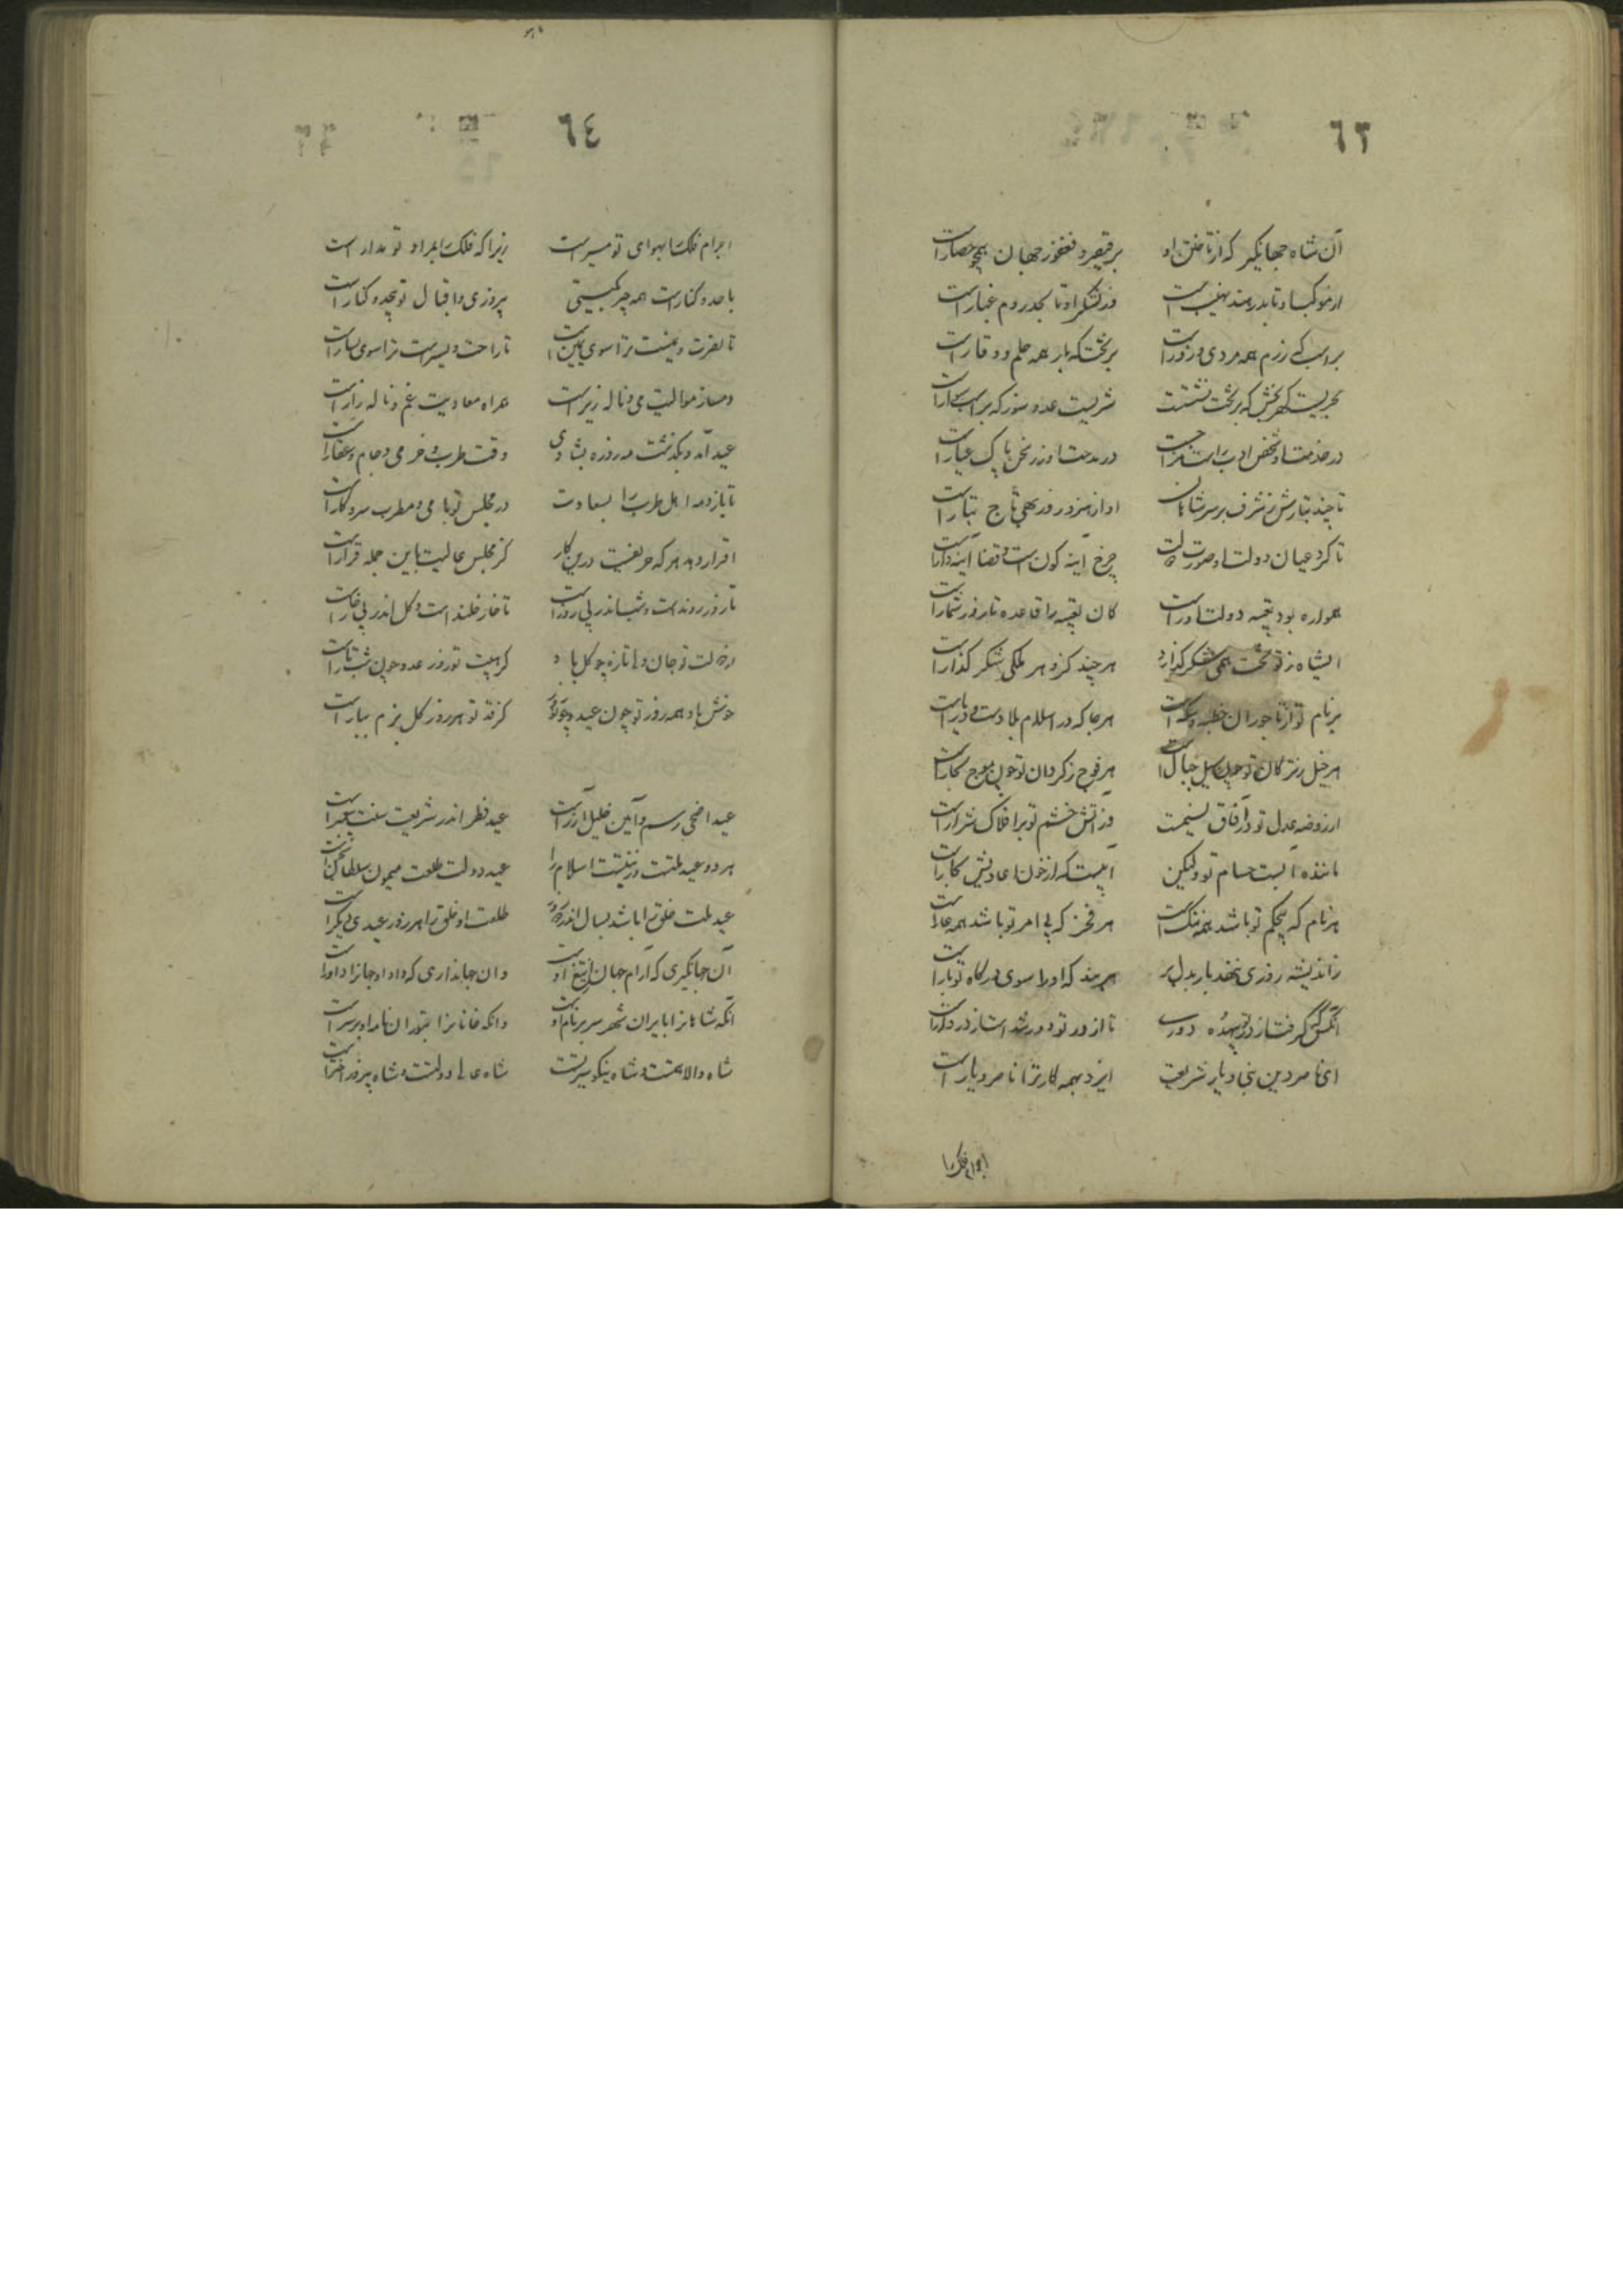 ٦٣
آن شاه جهانگیر که از تاختن او بر قیصر و فغفور جهان همچو حصار است
از موکب او تا بدر هند نهیب است وز لشکر او تا بحد روم غبار است
بر اسب که رزم همه مردی و زور است بر تخت که بار همه حلم و وقار است
بحریست گهربخش که بر تخت نشست شیریست عدوسوز که بر اسب سوار است
در خدمت او شخص ادب را در مدحت او زر سخن پاک عیار است
تا چند تبارش ز شرف بر سر شاهان او از هنر و روز بهی تاج تبار است
تا کرد عیان دولت او صورت چرخ آینه گون است و قضا آینه‌دار است
همواره بود بقیه دولت او راست کان بقیه را قاعده تا روز شمار است
ای شاه ز تو تخت همی شکر گذارد هر چند کزو هر ملکی شکر گذار است
بر نام تو از تاجوران خطبه و سکه است هر جا که در اسلام بلاد است و دیار است
هر خیل ز ترکان تو چون سیل جبال است هر فوج ز گردان تو چون موج بحار است
از روضه عدل تو در آفاق نسیمست وز آتش خشم تو بر افلاک شرار است
ماننده آبست حسام تو ولیکن آبیست که از خون اعادیش بخار است
هر نام که بیحکم تو باشد همه ننگ است هر فخر که بی امر تو باشد همه عار است
ز اندیشه روزی ننهد بار بدل بر هر بنده که او را سوی درگاه تو بار است
آنکس که گرفت از در تو بیهده دوری تا از در تو دور شد است از در دار است
ای ناصر دین نبی و یار شریعت ایزد بهمه کار ترا ناصر و یار است
اجرام فلک را
٦٤
اجرام فلک را بهوای تو مسیر است زیرا که فلک را بمراد تو مدار است
با حد و کنار است همه چیز بگیتی پیروزی و اقبال تو بیحد و کنار است
تا نصرت و یمنت ترا سوی یمین است تا راحت و یسر است ترا سوی یسار است
دمساز موالیت می و ناله زیر است همراه معادیت غم و ناله زار است
عید آمد و بگذشت مه روزه بشادی وقت طرب و خرمی و جام و عقار است
تا یازده اهل طرب را بسعادت در مجلس تو با می و مطرب سر و کار است
اقرار دهد هر که حریفست درین کار کز مجلس عالیت باین جمله قرار است
تا روز رونده است و شب اندر پی روز است تا خار خلنده است و گل اندر پی خار است
از دولت تو جان و دل تازه چو گل باد کز هیبت تو روز عدو چون شب تار است
خوش باد همه روز تو چون عید و چو نوروز کز فر تو هر روز گل بزم ببار است
عید اضحی رسم و آیین خلیل آزر است عید فطر اندر شریعت سنت پیغمبر است
هر دو عید ملتست و زینتست اسلام را عید دولت طلعت میمون سلطان سنجر است
عید ملت خلق را باشد بسال اندر دو روز طلعت او خلق را هر روز عیدی دیگر است
آن جهانگیری که آرام جهان از تیغ اوست وان جهانداری که داد او جهان را داور است
آنکه شاهانرا بایران شهر سر بر نام اوست وانکه خانانرا بتوران نامه او بر سر است
شاه والا همتست و شاه نیکو سیرتست شاه عالی دولتست و شاه پیروز اختر است